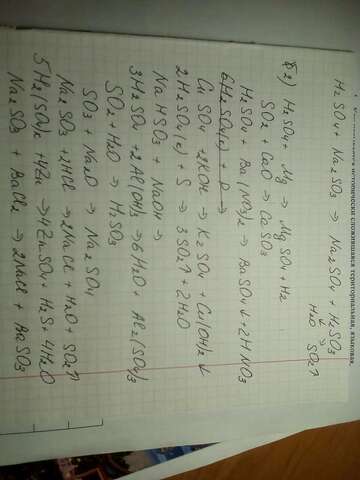 территориальная, языковая,
H₂SO₄ + Na₂SO₃ → Na₂SO₄ + H₂SO₃
H₂O SO₂↑
2) H₂SO₄ + Mg → MgSO₄ + H₂
SO₂ + CaO → CaSO₃
H₂SO₄ + Ba(NO₃)₂ → BaSO₄↓ + 2HNO₃
6H₂SO₄(к) + P →
CuSO₄ + 2KOH → K₂SO₄ + Cu(OH)₂↓
2H₂SO₄(к) + S → 3SO₂↑ + 2H₂O
NaHSO₃ + NaOH →
3H₂SO₄ + 2Al(OH)₃ → 6H₂O + Al₂(SO₄)₃
SO₂ + H₂O → H₂SO₃
SO₃ + Na₂O → Na₂SO₄
Na₂SO₃ + 2HCl → 2NaCl + H₂O + SO₂↑
5H₂(SO₄)₂ + 4Zn → 4ZnSO₄ + H₂S + 4H₂O
Na₂SO₃ + BaCl₂ → 2NaCl + BaSO₃